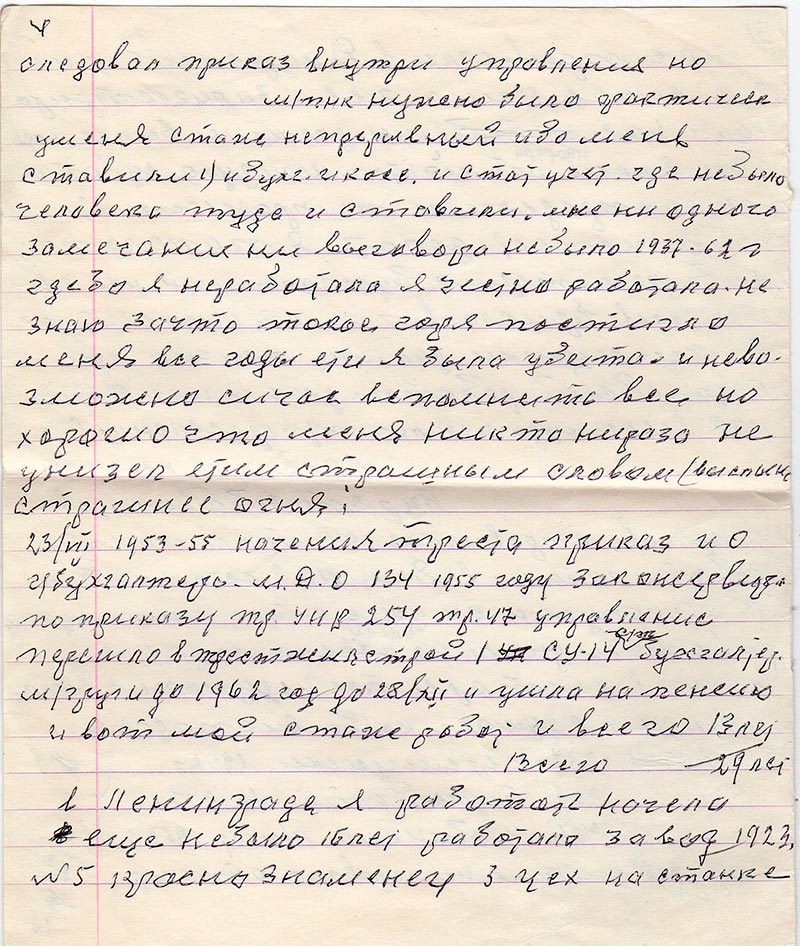 4
следовал приказ внутри управления но
нужно было фактически
уменя стаж непрерывный ибо меня
ставили и бухг. и касс. и стат учет. где небыло
человека туда и ставили. мне ни одного
замечание ни выговора небыло 1937-62 г
гдебо я неработала я честно работала. не
знаю зачто такое горя постигло
меня все годы ети я была убита. и нево-
зможно сичас вспомнить все но
хорошо что меня никто ниразо не
унизел етим страшным словом (
страшнее огня;
23/VII 1953-55 трест приказ И О
г/бухгалтера. 134 1955 году
по приказу тр. 254 тр. 47 управление
перешло в трест жилстрой 1 СУ-14 бухгалтер.
м/группи до 1962 год до 28/XII и ушла на пенсию
и вот мой стаж работ и всего 13 лет
Всего 29 лет
в Ленинграде я работат начела
еще небыло 16 лет работала завод 1923,
№5 краснознаменец 3 цех на станке